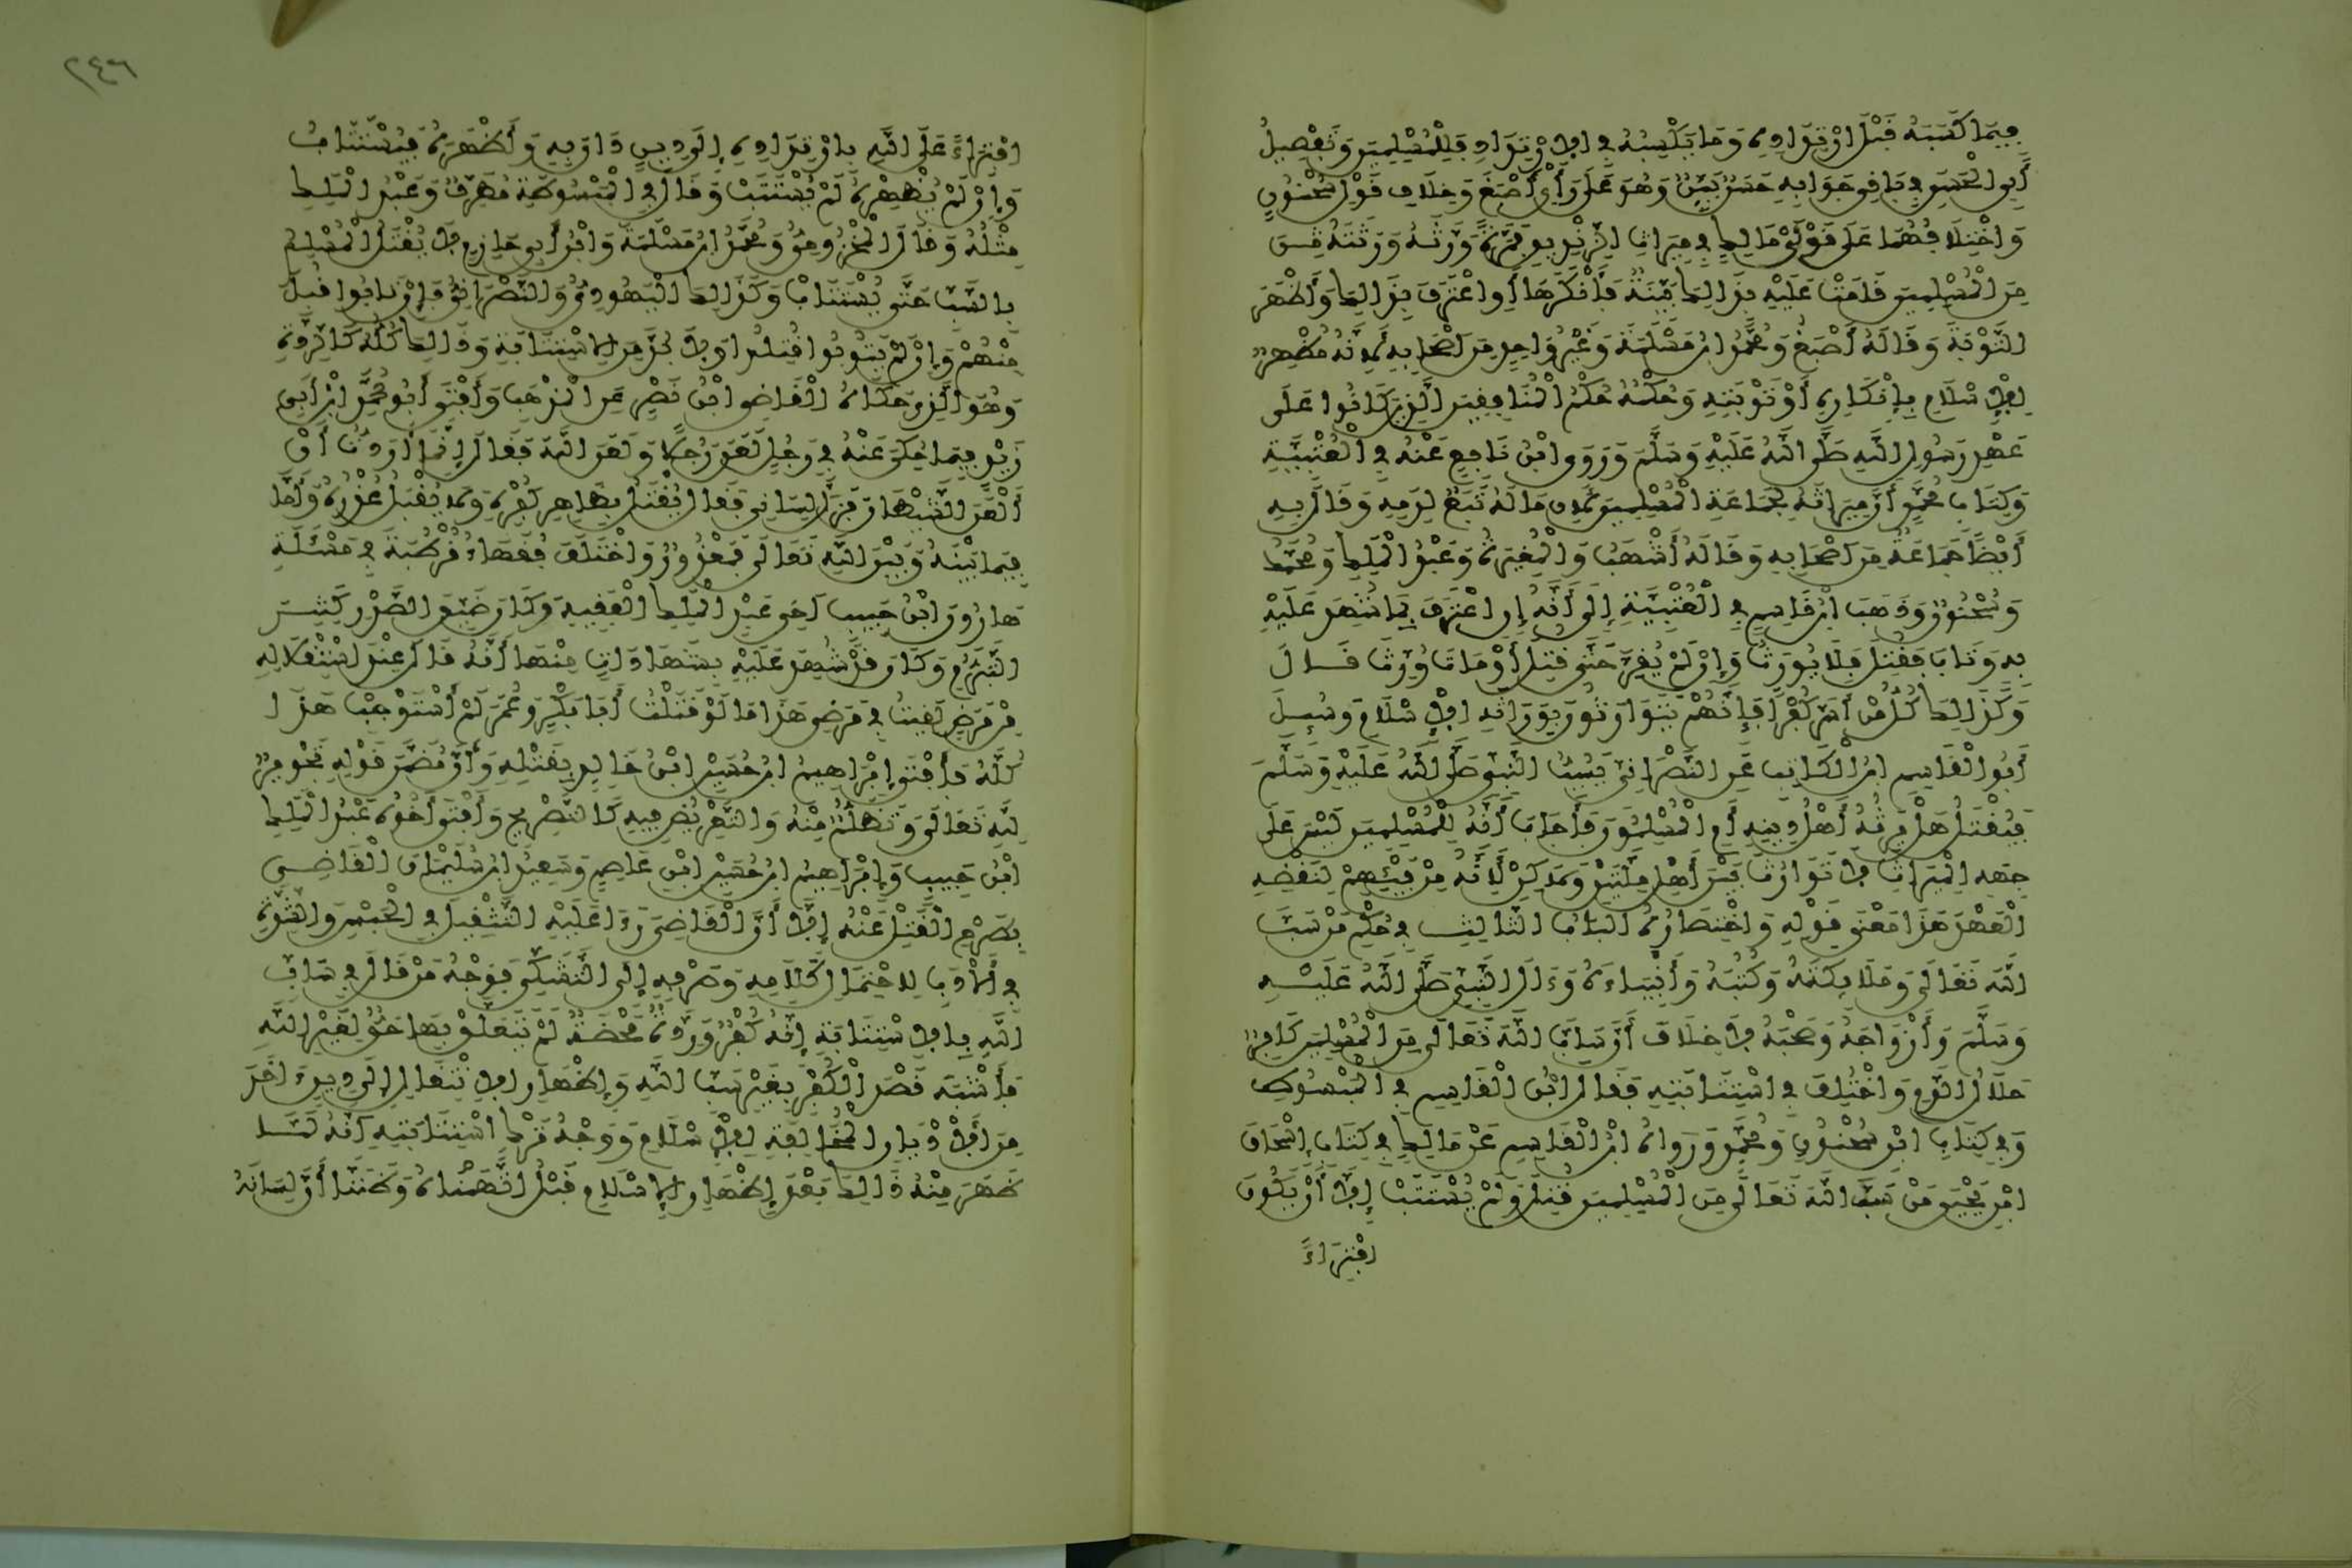 فيما كسبه قبل ارتداده وما يكسبه في الارتداد فللمسلمين وتفصيل
أبو الحسن باقي جوابه حسن بين وهو على رأي أصبغ وخلاف قول سحنون
واختلافهما على قولي مالك في ميراث الزنديق فمرة ورثه ورثته من
من المسلمين قامت عليه بذلك بينة فأنكرها أو اعترف بذلك وأظهر
التوبة وقاله أصبغ ومحمد ابن مسلمة وغير واحد من أصحابه لأنه مظهر
للإسلام بإنكاره أو توبته وحكمه حكم المنافقين الذين كانوا على
عهد رسول الله صلى الله عليه وسلم وروى ابن نافع عنه في العتبية
وكتاب محمد أن ميراثه لجماعة المسلمين لأن ماله تبع لدمه وقال به
أيضا جماعة من أصحابه وقاله أشهب والمغيرة وعبد الملك ومحمد
وسحنون وذهب ابن قاسم في العتبية إلى أنه إن اعترف بما شهد عليه
به وتاب فقتل فلا يورث وإن لم يقر حتى قتل أو مات ورث قال
وكذلك كل من أسر كفرا فإنهم يتوارثون بوراثة الإسلام وسئل
أبو القاسم ابن الكاتب عن النصراني يسب النبي صلى الله عليه وسلم
فيقتل هل يرثه أهل دينه أم المسلمون فأجاب أنه للمسلمين ليس على
جهة الميراث لا توارث بين أهل ملتين ولاكن لأنه من فيئهم لنقضه
العهد هذا معنى قوله واختصاره الباب الثالث في حكم من سب
الله تعالى وملائكته وكتبه وأنبياءه وءال النبي صلى الله عليه
وسلم وأزواجه وصحبه لا خلاف أن ساب الله تعالى من المسلمين كافر
حلال الدم واختلف في استتابته فقال ابن القاسم في المبسوط
وفي كتاب ابن سحنون ومحمد ورواه ابن القاسم عن مالك في كتاب إسحاق
ابن يحيى من سب الله تعالى من المسلمين قتل ولم يستتب إلا أن يكون
افتراء
٢٤٦
افتراء على الله بارتداده إلى دين دان به وأظهره فيستتاب
وإن لم يظهره لم يستتب وقال في المبسوطة مطرف وعبد الملك
مثله وقال المخزومي ومحمد ابن مسلمة وابن أبي حازم لا يقتل المسلم
بالسب حتى يستتاب وكذلك اليهودي والنصراني فإن تابوا قبل
منهم وإن لم يتوبوا قتلوا ولا بد من الاستتابة وذلك كله كالردة
وهو الذي حكاه القاضي ابن نصر عن المذهب وأفتى أبو محمد ابن أبي
زيد فيما حكي عنه في رجل لعن رجلا ولعن الله فقال إنما أردت أن
ألعن الشيطان فزل لساني فقال يقتل بظاهر كفره ولا يقبل عذره وأما
فيما بينه وبين الله تعالى فمعذور واختلف فقهاء قرطبة في مسئلة
هارون ابن حبيب أخي عبد الملك الفقيه وكان ضيق الصدر كثير
التبرم وكان قد شهد عليه بشهادات منها أنه قال عند استثقلاله
من مرض لقيت في مرضي هذا ما لو قتلت أبا بكر وعمر لم أستوجب هذا
كله فأفتى إبراهيم ابن حسين ابن خالد بقتله وأن مضمن قوله تجوير
لله تعالى وتظلم منه والتعريض فيه كالتصريح وأفتى أخوه عبد الملك
ابن حبيب وإبراهيم ابن حسين ابن عاصم وسعيد ابن سليمان القاضي
بصرف القتل عنه إلا أن القاضي رءا عليه التثقيل في الحبس والشدة
في الأدب لاحتمال كلامه وصرفه إلى التشكي فوجه من قال في ساب
الله بالاستتابة إنه كفر وردة محضة لم يتعلق بها حق لغير الله
فأشبه قصد الكفر بغير سب الله وإظهار الانتقال إلى دين ءاخر
من الأديان المخالفة للإسلام ووجه ترك استتابته أنه لما
ظهر منه ذلك بعد إظهار الإسلام قبل اتهمناه وظننا أن لسانه